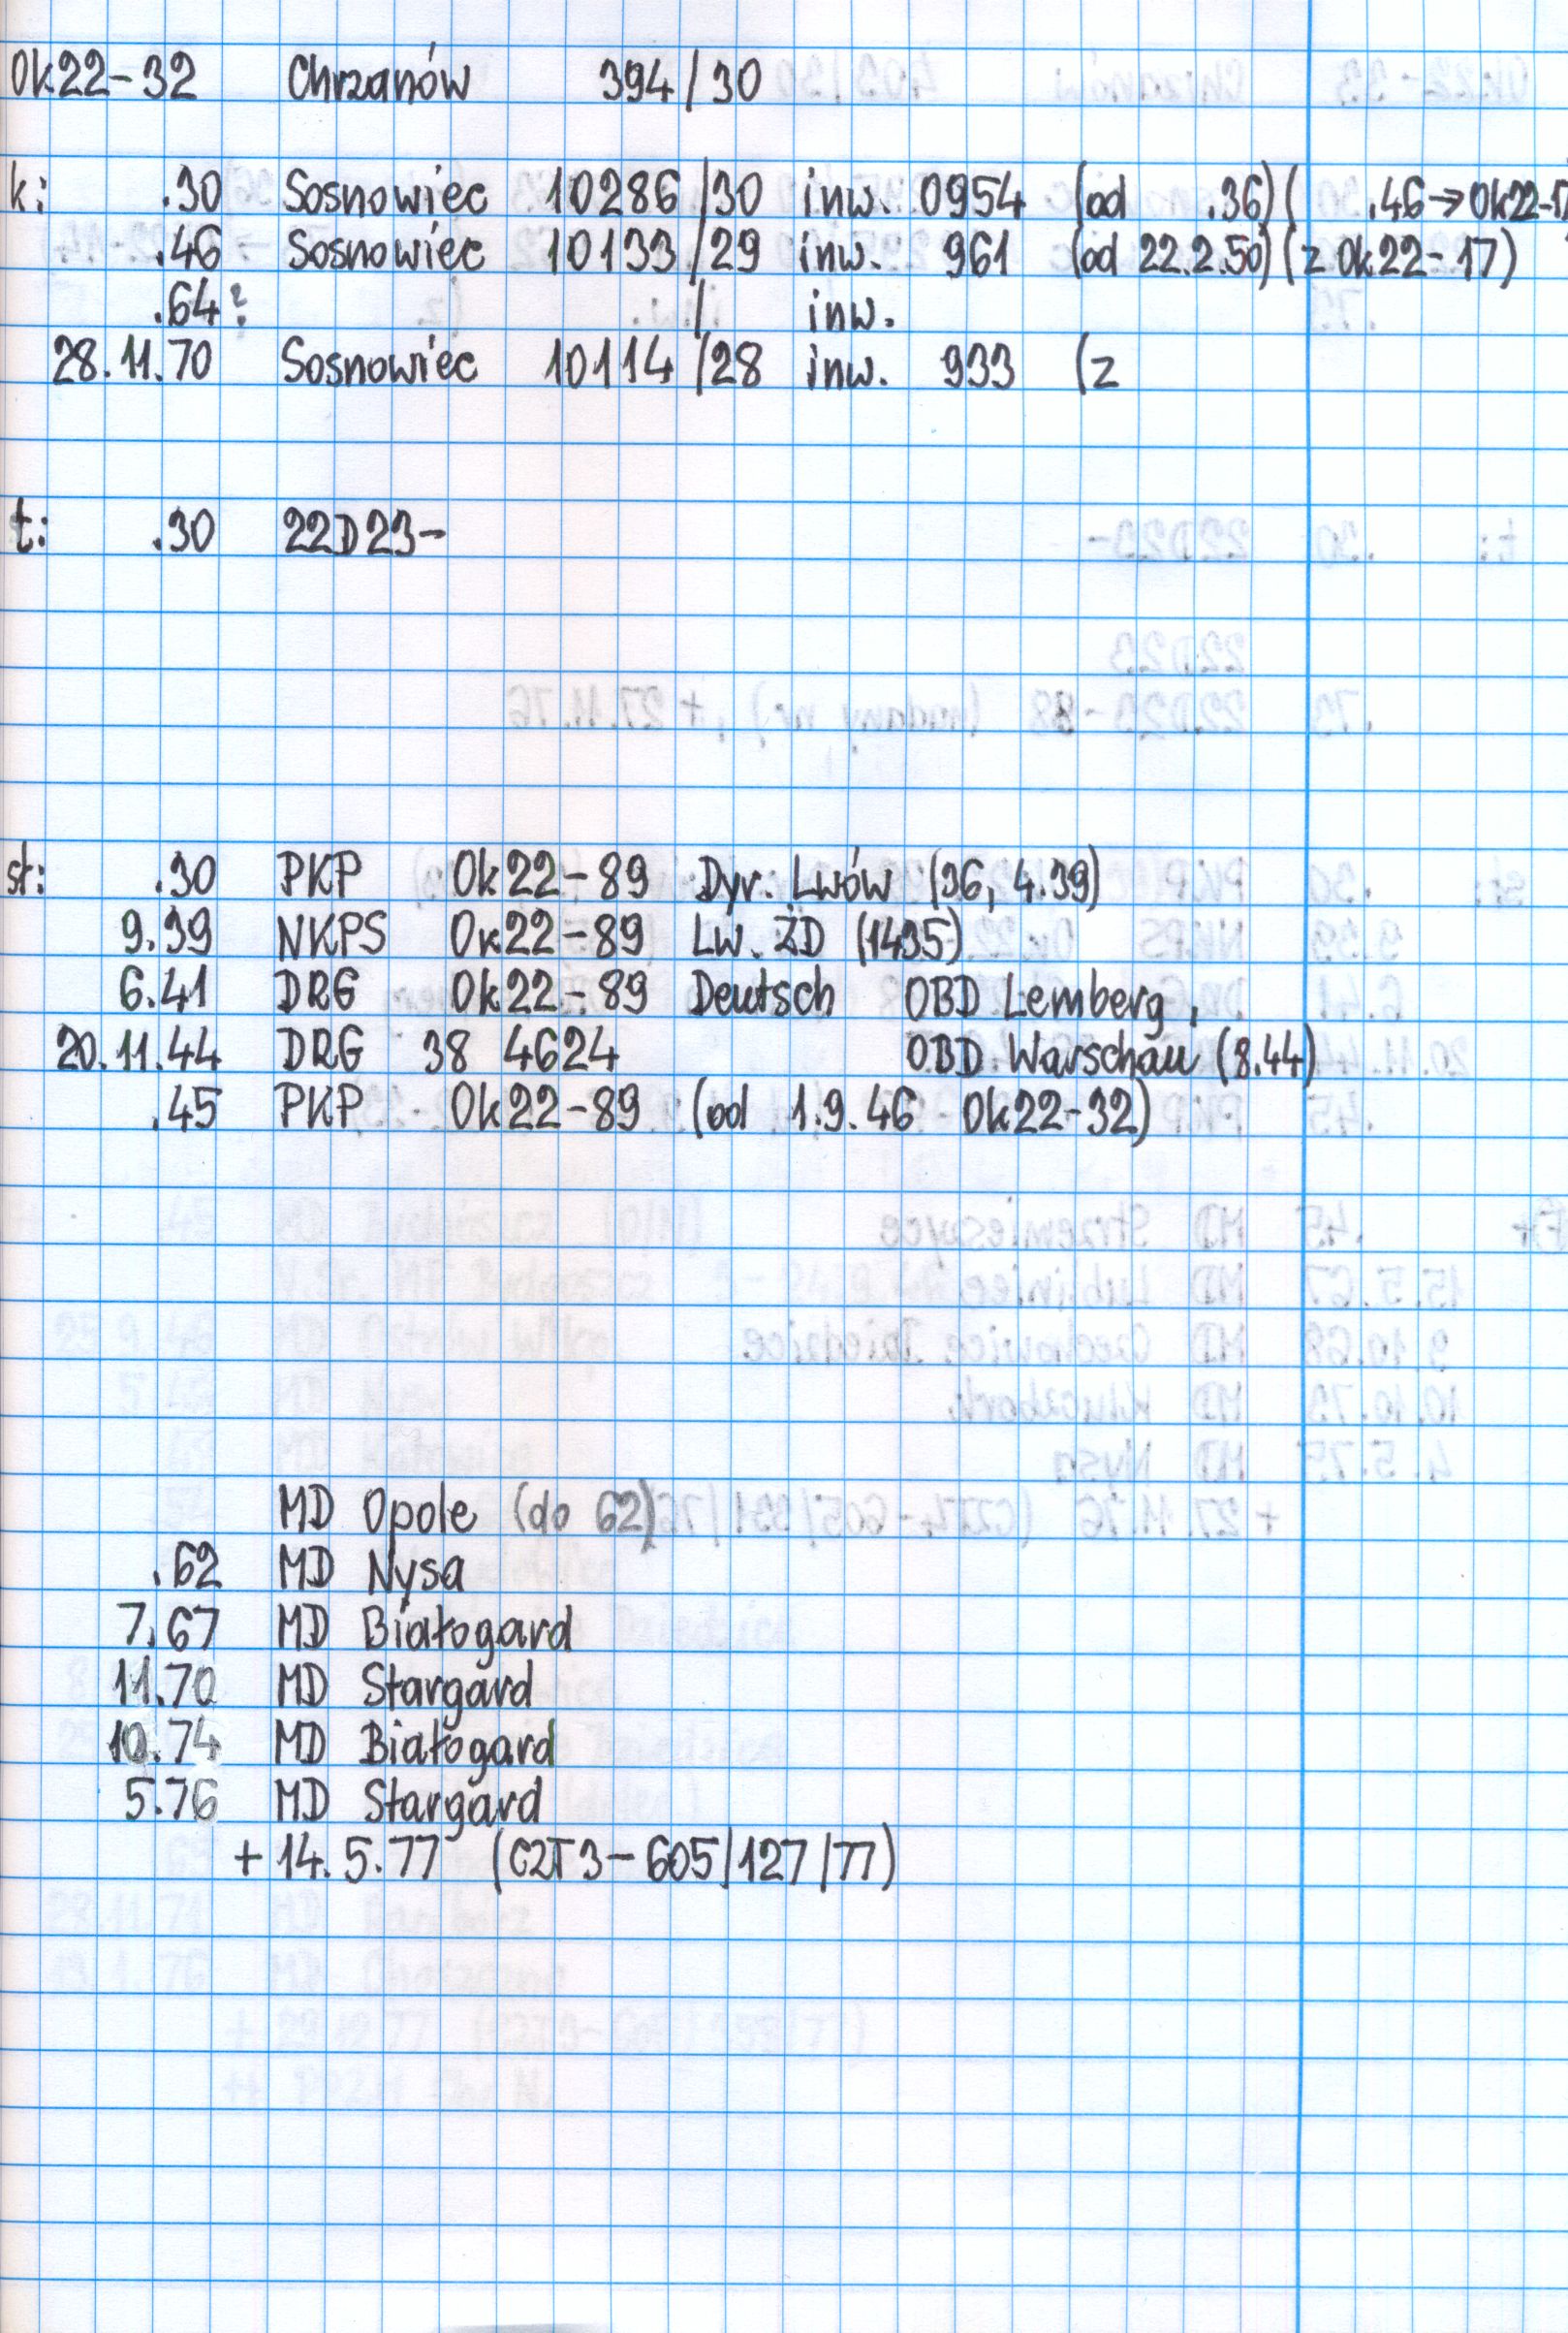 Ok22-32 Chrzanów 394/30
k: .30 Sosnowiec 10286/30 inw. 0954 (od .36) ( .46→Ok22-17
.46 Sosnowiec 10133/29 inw. 961 (od 22.2.50) (z Ok22-17)
.64? / inw.
28.11.70 Sosnowiec 10114/28 inw. 933 (z
t: .30 22D23-
st: .30 PKP Ok22-89 Dyr. Lwów (36, 4.39)
9.39 NKPS Ok22-89 Lw. ŻD (1435)
6.41 DRG Ok22-89 Deutsch OBD Lemberg,
20.11.44 DRG 38 4624 OBD Warschau (8.44)
.45 PKP Ok22-89 (od 1.9.46 Ok22-32)
MD Opole (do 62)
.62 MD Nysa
7.67 MD Białogard
11.70 MD Stargard
10.74 MD Białogard
5.76 MD Stargard
+ 14.5.77 (C2T3-605/127/77)